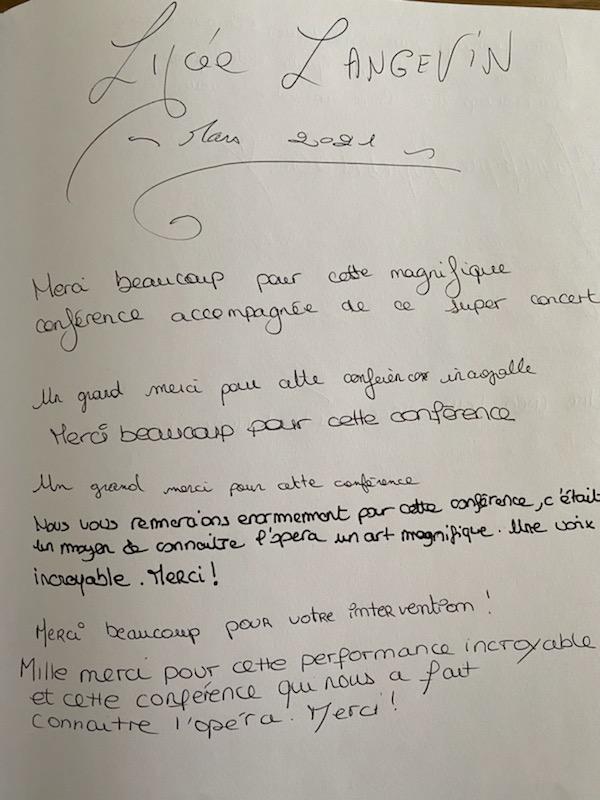 Lycée LANGEVIN
~ Mars 2021 ~
Merci beaucoup pour cette magnifique
conférence accompagnée de ce super concert
Un grand merci pour cette conférence incroyable
Merci beaucoup pour cette conférence
Un grand merci pour cette conférence
Nous vous remercions enormement pour cette conférence, c'était
un moyen de connaitre l'opera un art magnifique. Une voix
incroyable. Merci!
Merci beaucoup pour votre intervention!
Mille merci pour cette performance incroyable
et cette conférence qui nous a fait
connaitre l'opéra. Merci!